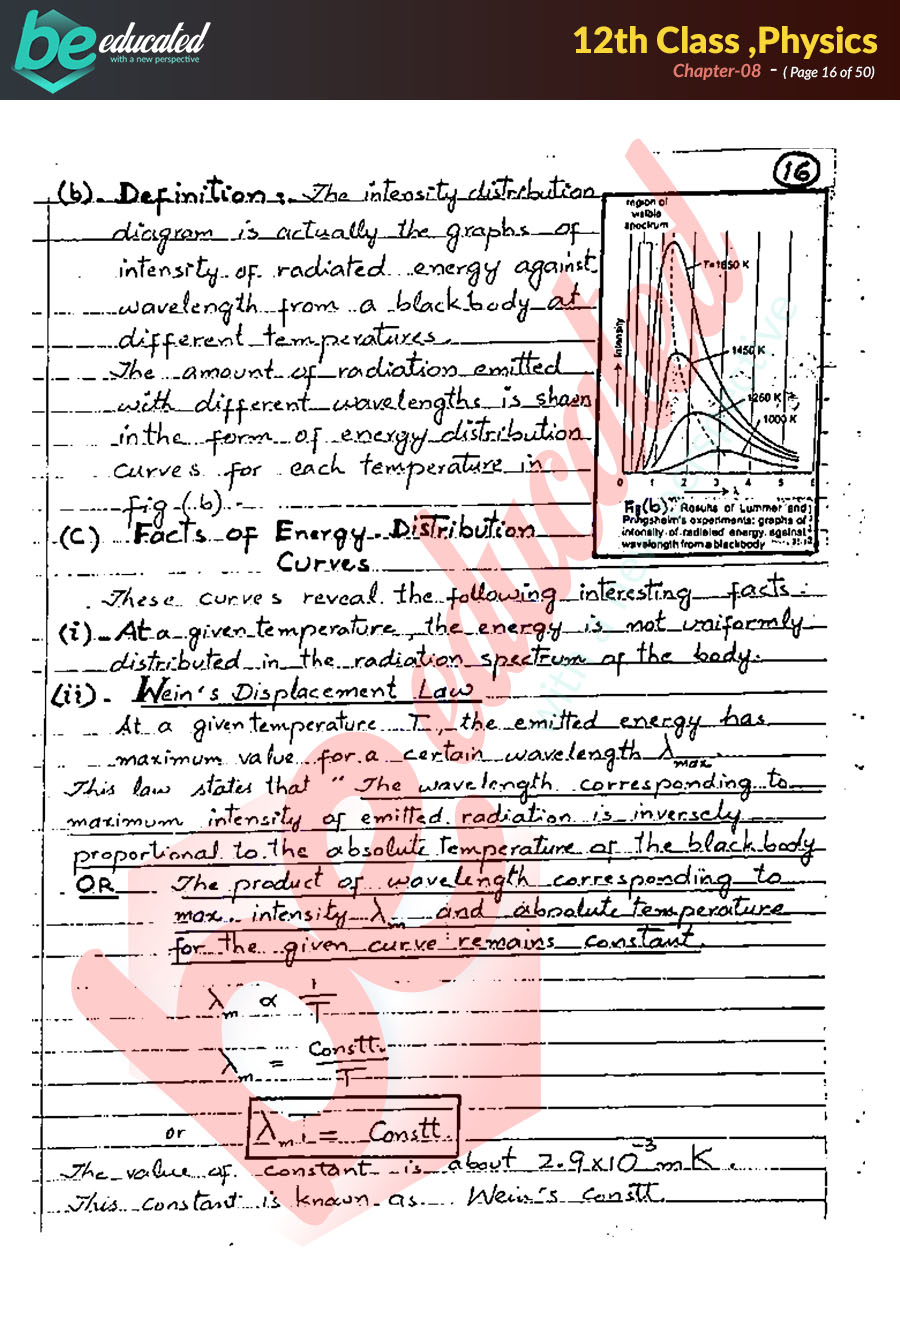 be educated
with a new perspective
12th Class ,Physics
Chapter-08 - ( Page 16 of 50)
16
(b). Definition: The intensity distribution
diagram is actually the graphs of
intensity of radiated energy against
wavelength from a blackbody at
different temperatures.
The amount of radiation emitted
with different wavelengths is shown
in the form of energy distribution
curves for each temperature in
fig (b).
region of
visible
spectrum
T=1650 K
1450 K
1260 K
1000 K
Intensity
0 1 2 3 4 5 6
λ
Fig(b). Results of Lummer and
Pringsheim's experiments: graphs of
intensity of radiated energy against
wavelength from a blackbody
(C) Facts of Energy Distribution
Curves
These curves reveal the following interesting facts:
(i) At a given temperature, the energy is not uniformly
distributed in the radiation spectrum of the body.
(ii). Wein's Displacement Law
At a given temperature T, the emitted energy has
maximum value for a certain wavelength λmax.
This law states that "The wavelength corresponding to
maximum intensity of emitted radiation is inversely
proportional to the absolute temperature of the blackbody
OR The product of wavelength corresponding to
max. intensity λm and absolute temperature
for the given curve remains constant.
λm ∝ 1/T
λm = Constt./T
or λm T = Constt.
The value of constant is about 2.9x10⁻³ mK.
This constant is known as Wein's constt.
be educated
with a new perspective